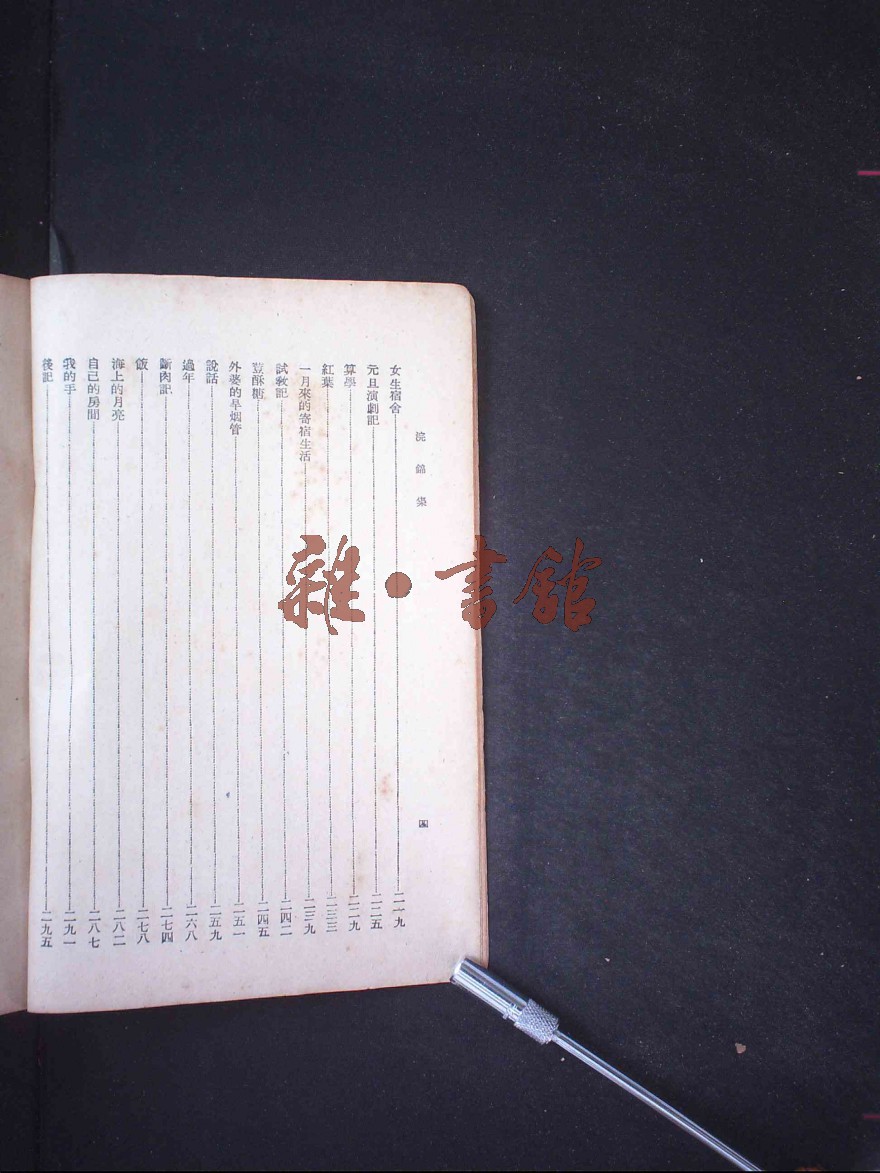 浣錦集
四
女生宿舍 二一九
元旦演劇記 二二五
算學 二二九
紅葉 二三三
一月來的寄宿生活 二三九
試教記 二四二
荳酥糖 二四五
外婆的旱烟管 二五一
說話 二五九
過年 二六八
斷肉記 二七四
飯 二七八
海上的月亮 二八二
自己的房間 二八七
我的手 二九一
後記 二九五
雜·書館